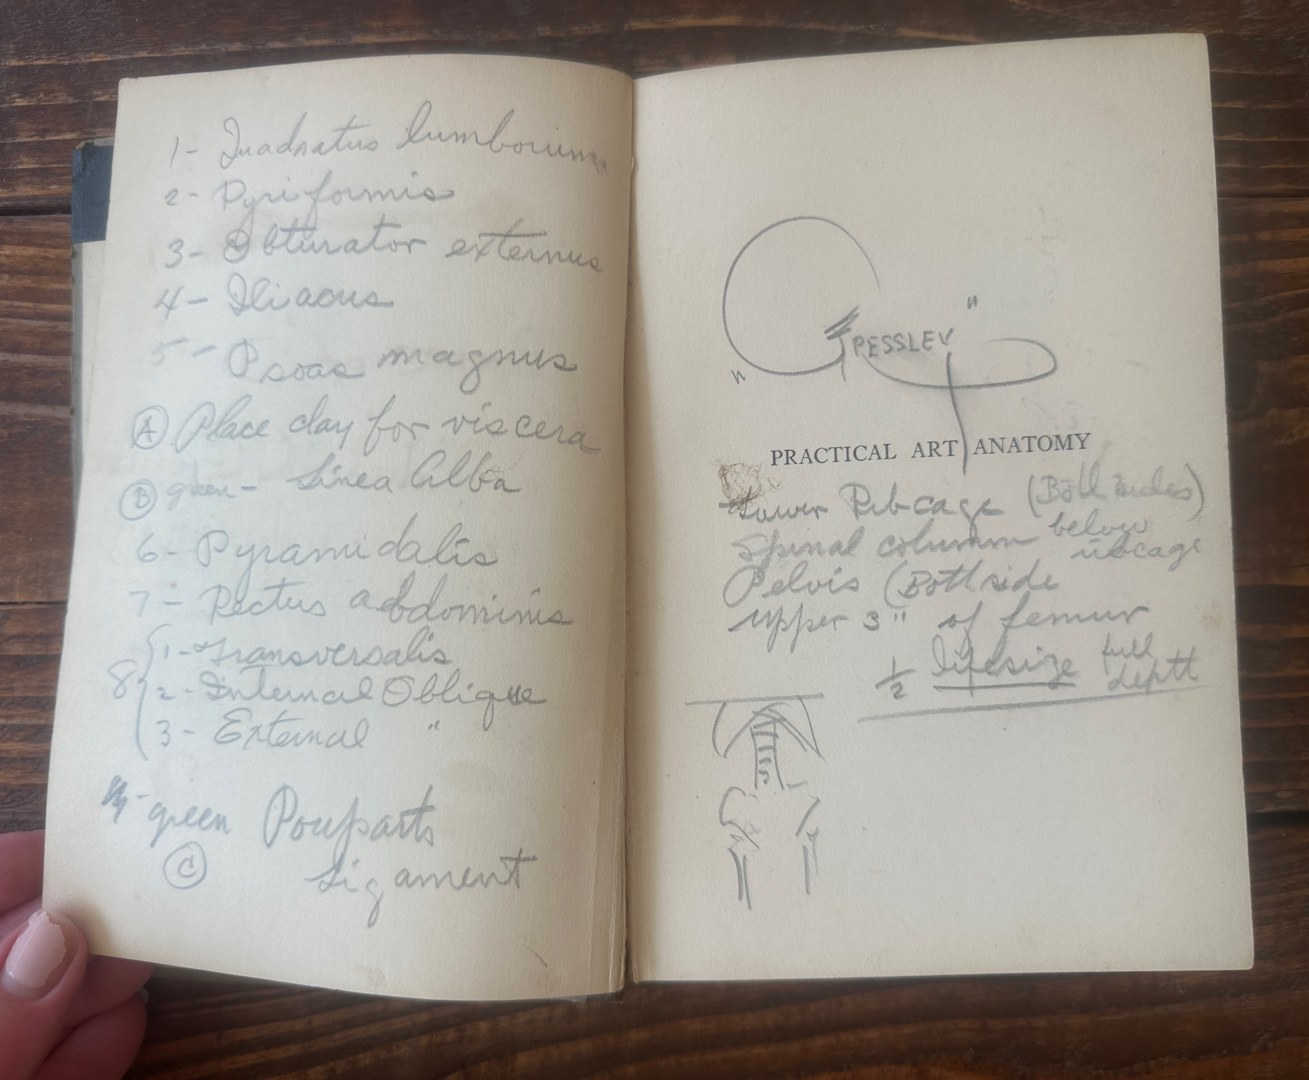 1- Quadratus lumborum
2- Pyriformis
3- Obturator externus
4- Iliacus
5- Psoas magnus
(A) Place clay for viscera
(B) green- Linea Alba
6- Pyramidalis
7- Rectus abdominis
8 { 1- Transversalis
2- Internal Oblique
3- External "
green Pouparts
(C) Ligament
PESSLEY
PRACTICAL ART ANATOMY
Lower Ribcage (Both sides)
Spinal column below ribcage
Pelvis (Both side
upper 3" of femur
1/2 lifesize full depth